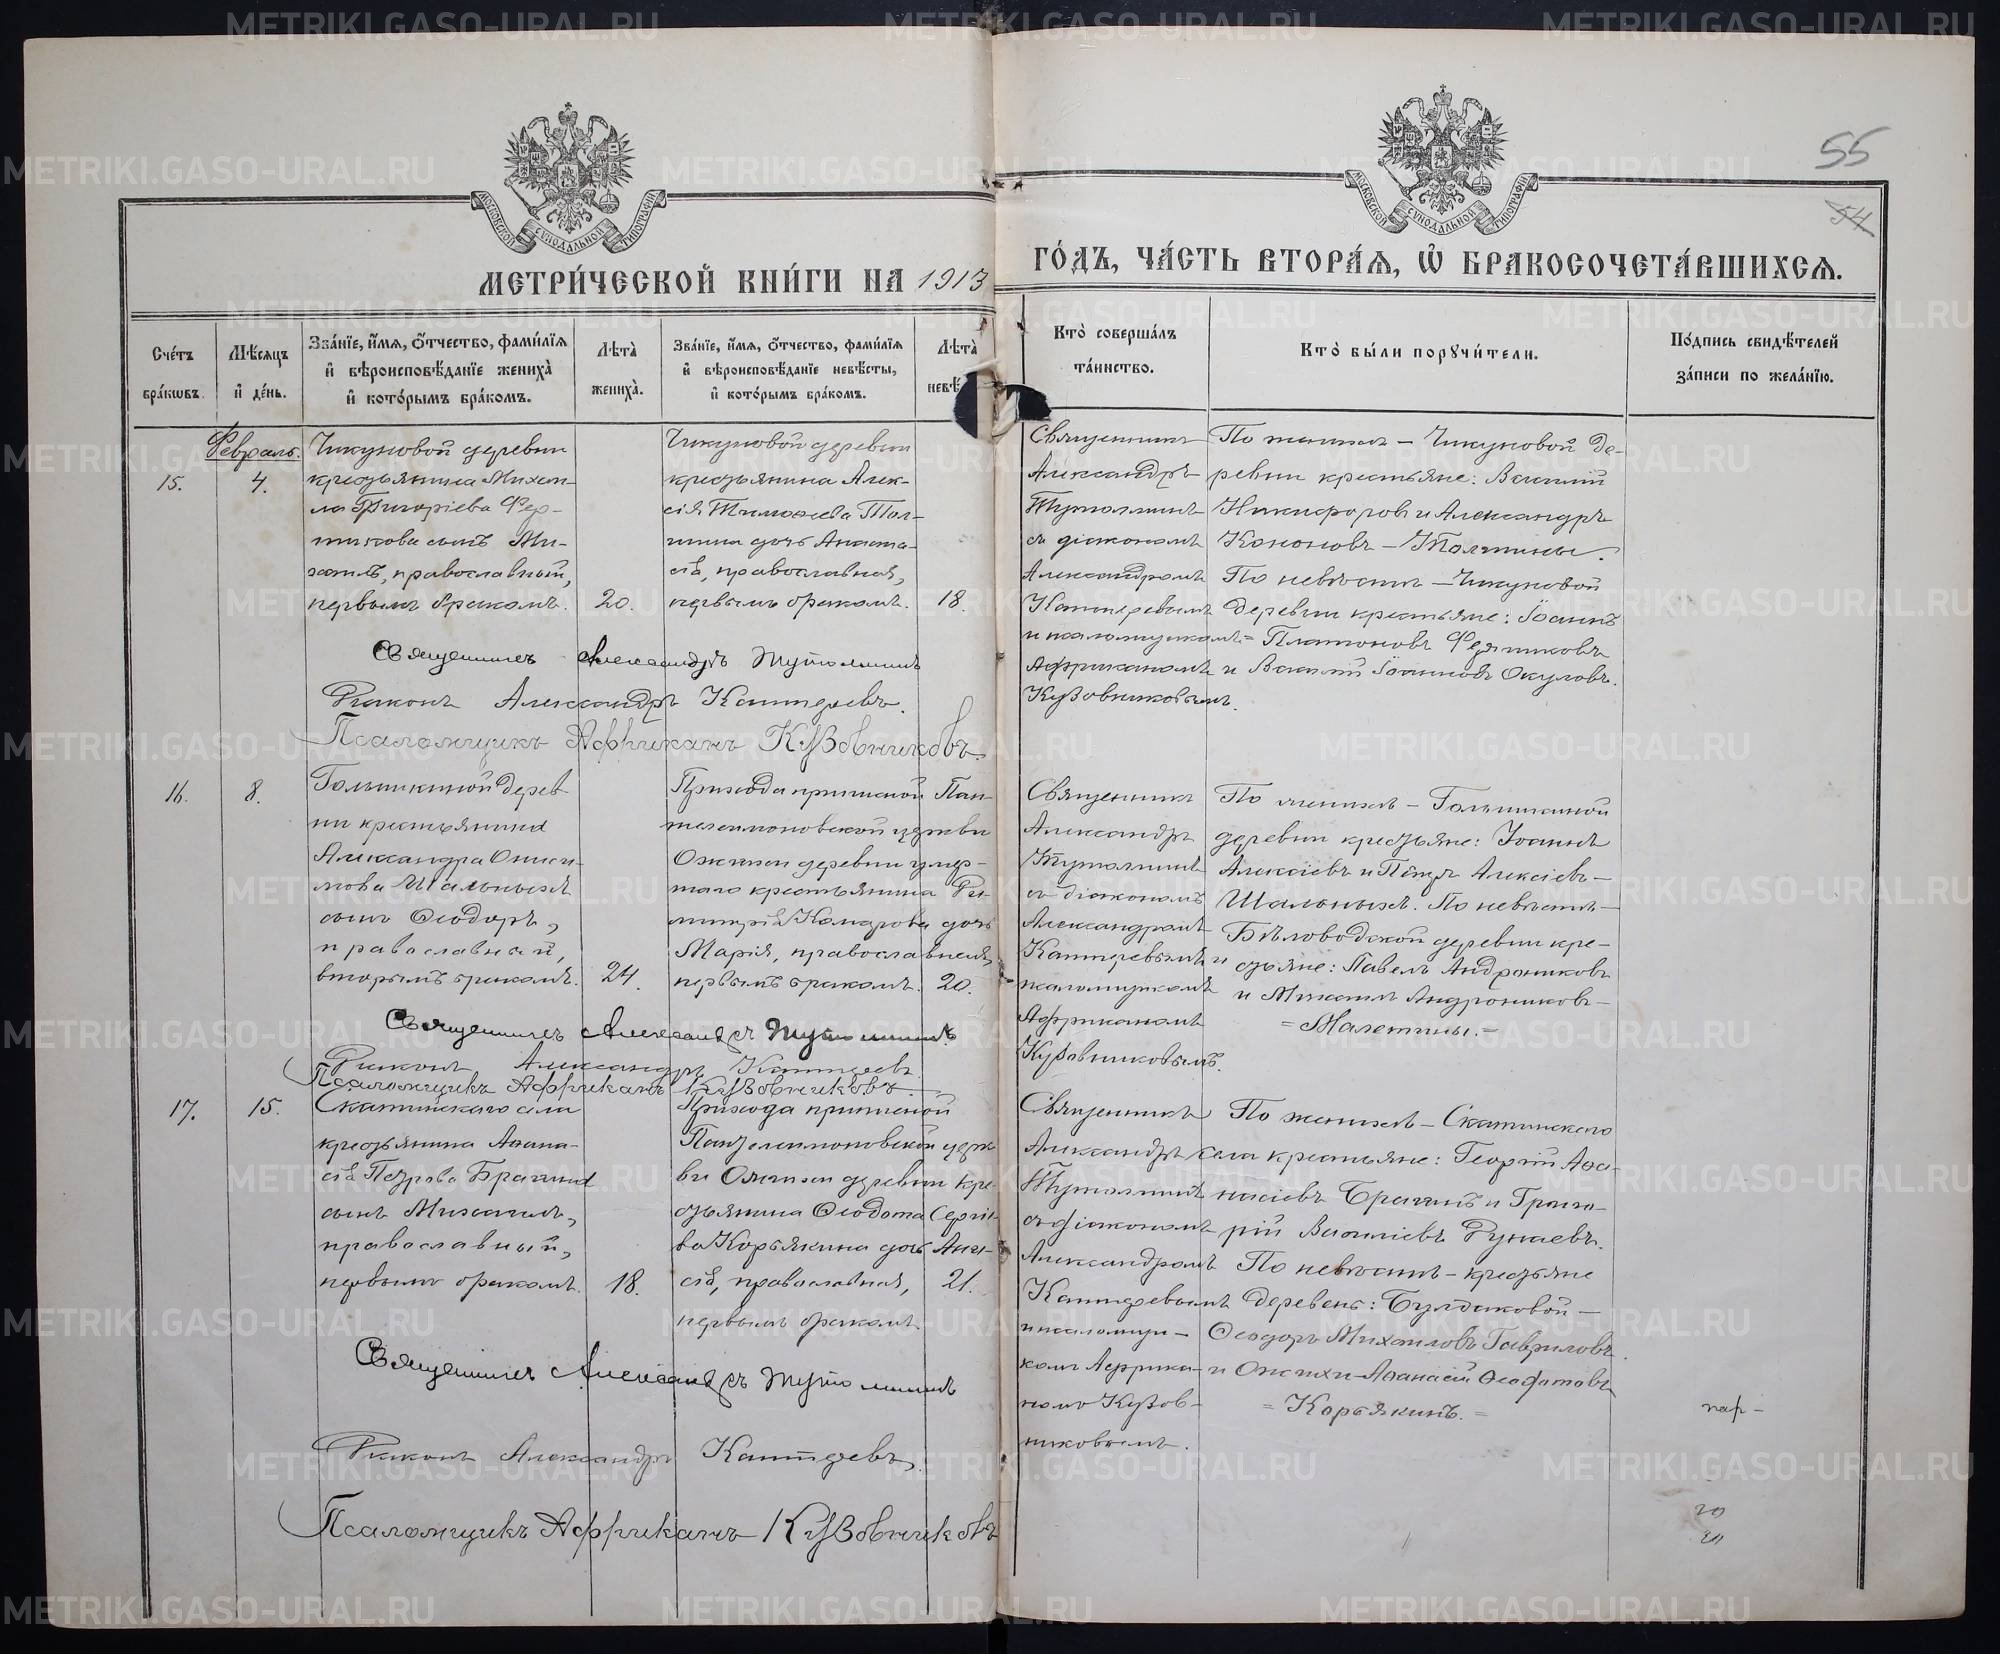 МЕТРИ́ЧЕСКОЙ КНИ́ГИ НА 1913
ГО́ДЪ, ЧА́СТЬ ВТОРА́Я, Ѡ҆ БРАКОСОЧЕТА́ВШИХСЯ.
55
54
МОСКОВСКОЙ СѴНОДАЛЬНОЙ ТИПОГРАФІИ
МОСКОВСКОЙ СѴНОДАЛЬНОЙ ТИПОГРАФІИ
Сче́тъ бра́кѡвъ.
Мѣ́сяцъ и҆ де́нь.
Зва́нїе, и҆́мя, ѻ҆́тчество, фами́лїя
и҆ вѣроисповѣ́данїе жениха̀
и҆ кото́рымъ бра́комъ.
Лѣта̀ жениха̀.
Зва́нїе, и҆́мя, ѻ҆́тчество, фами́лїя
и҆ вѣроисповѣ́данїе невѣ́сты,
и҆ кото́рымъ бра́комъ.
Лѣта̀ невѣ́
Кто̀ соверша́лъ
та́инство.
Кто̀ бы́ли порꙋчи́тели.
По́дпись свидѣ́телей
за́писи по жела́нїю.
Февраль.
15.
4.
Чикуновой деревни
крестьянина Михаи-
ла Григорiева Фер-
тикова сынъ Ми-
хаилъ, православный,
первымъ бракомъ.
20.
Чикуновой деревни
крестьянина Алек-
сiя Тимофеева Тол-
стина дочь Анаста-
сiя, православная,
первымъ бракомъ.
18.
Священникъ
Александръ
Тутолминъ
съ дiакономъ
Александромъ
Каптеревымъ
и псаломщикомъ
Африканомъ
Кузовниковымъ.
По женихѣ – Чикуновой де-
ревни крестьяне: Василiй
Никифоровъ и Александръ
Кононовъ –
По невѣстѣ – Чикуновой
деревни крестьяне: Іоаннъ
Платоновъ
и Василiй Іоанновъ Окуловъ.
Священникъ Александръ Тутолминъ
Дiаконъ Александръ Каптеревъ.
Псаломщикъ Африканъ Кузовниковъ.
16.
8.
деревни
крестьянина
Александра Ониси-
мова Шальныхъ
сынъ Ѳеодоръ,
православный,
вторымъ бракомъ.
24.
Прихода приписной Пан-
телеимоновской церкви
Ожгихи деревни умер-
шаго крестьянина Ди-
митрiя Комарова дочь
Марiя, православная,
первымъ бракомъ.
20.
Священникъ
Александръ
Тутолминъ
съ дiакономъ
Александромъ
Каптеревымъ и
псаломщикомъ
Африканомъ
Кузовниковымъ.
По женихѣ –
деревни крестьяне: Іоаннъ
Алексiевъ и Петръ Алексiевъ –
Шальныхъ. По невѣстѣ –
Бѣловодской деревни кре-
стьяне: Павелъ Андрониковъ
и Михаилъ Андрониковъ –
= Малетины. =
Священникъ Александръ Тутолминъ
Дiаконъ Александръ Каптеревъ
Псаломщикъ Африканъ Кузовниковъ
17.
15.
Скатинскаго села
крестьянина Аѳана-
сiя Петрова Брагина
сынъ Михаилъ,
православный,
первымъ бракомъ.
18.
Прихода приписной
Пантелеимоновской церк-
ви Ожгихи деревни кре-
стьянина Ѳеодота Сергiе-
ва Корякина дочь
православная,
первымъ бракомъ.
21.
Священникъ
Александръ
Тутолминъ
съ дiакономъ
Александромъ
Каптеревымъ
и псаломщи-
комъ Африка-
номъ Кузов-
никовымъ.
По женихѣ – Скатинскаго
села крестьяне: Георгiй Аѳа-
насiевъ Брагинъ и Григо-
рiй Василiевъ Дунаевъ.
По невѣстѣ – крестьяне
деревень: Булдаковой –
Ѳеодоръ Михаиловъ Гавриловъ
и Ожгихи – Аѳанасiй Ѳеодотовъ
= Корякинъ. =
Священникъ Александръ Тутолминъ
Дiаконъ Александръ Каптеревъ.
Псаломщикъ Африканъ Кузовниковъ
20